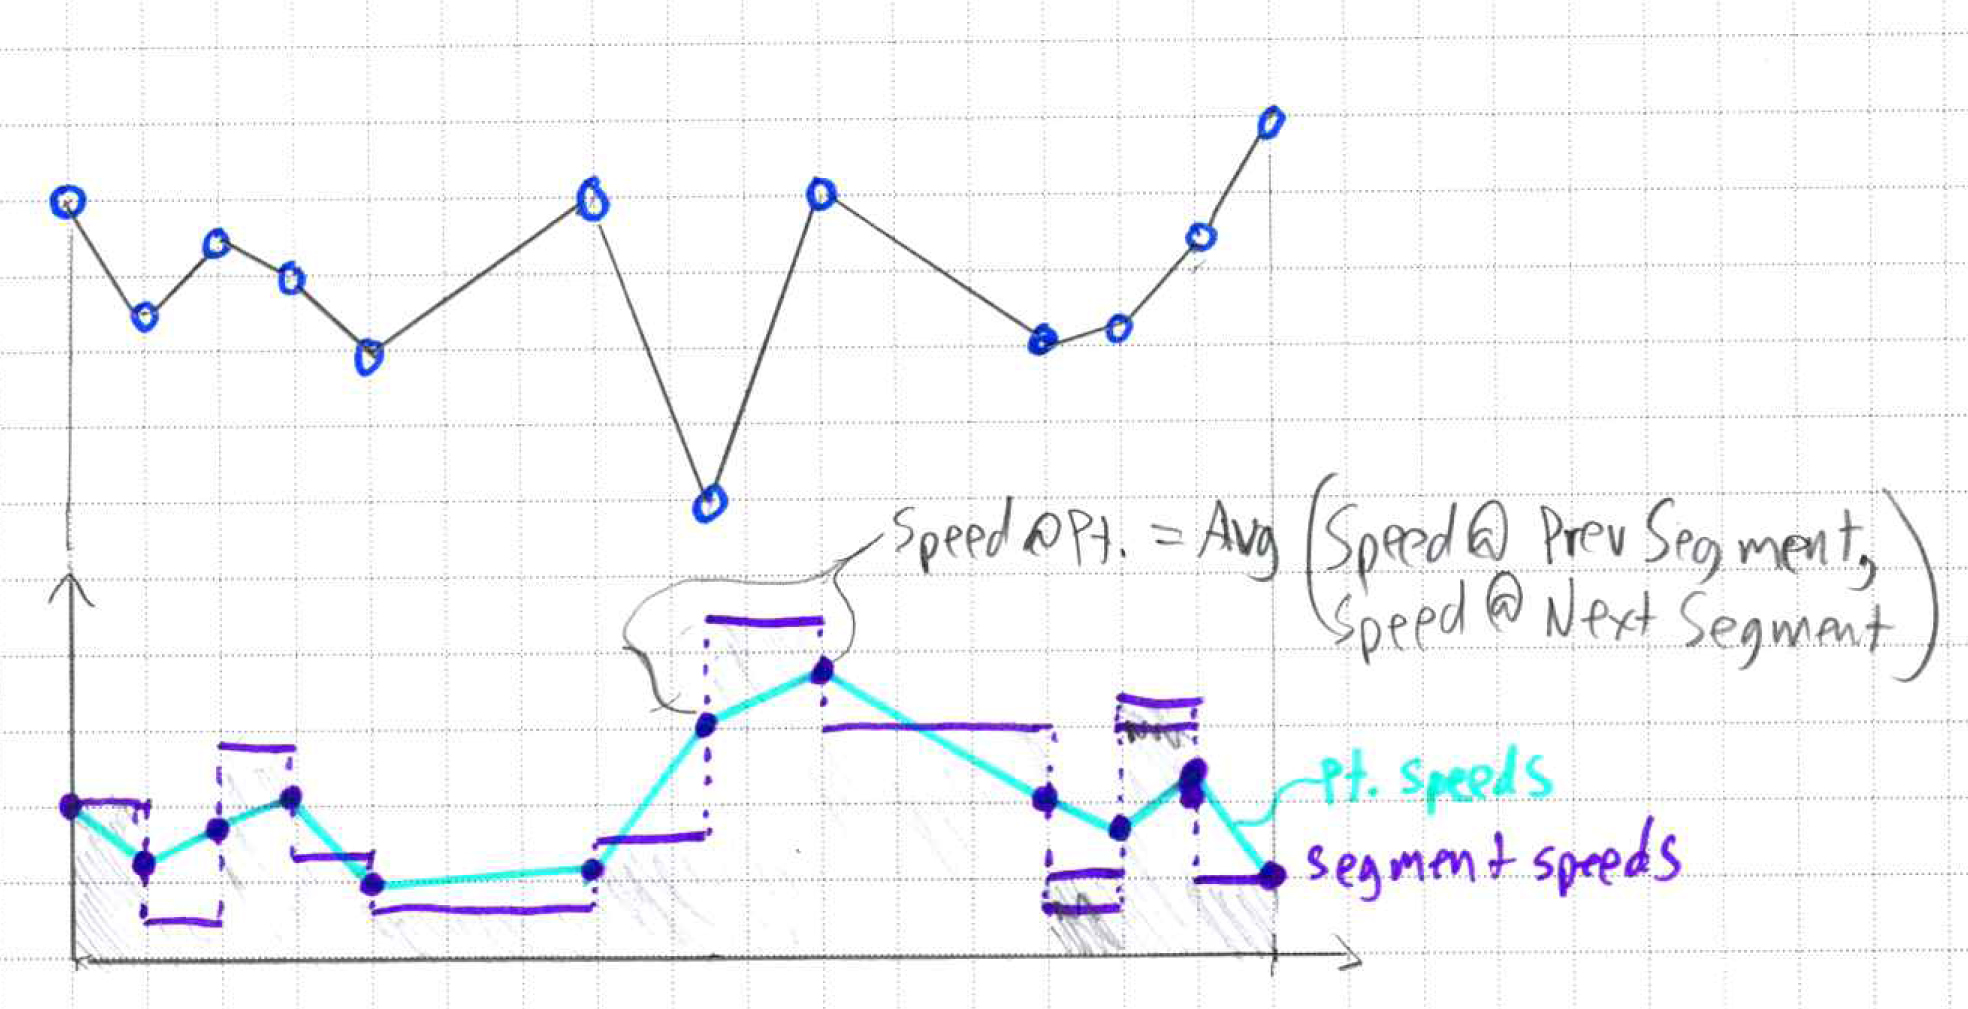 Speed @ Pt. = Avg (Speed @ Prev Segment,
Speed @ Next Segment)
Pt. speeds
segment speeds